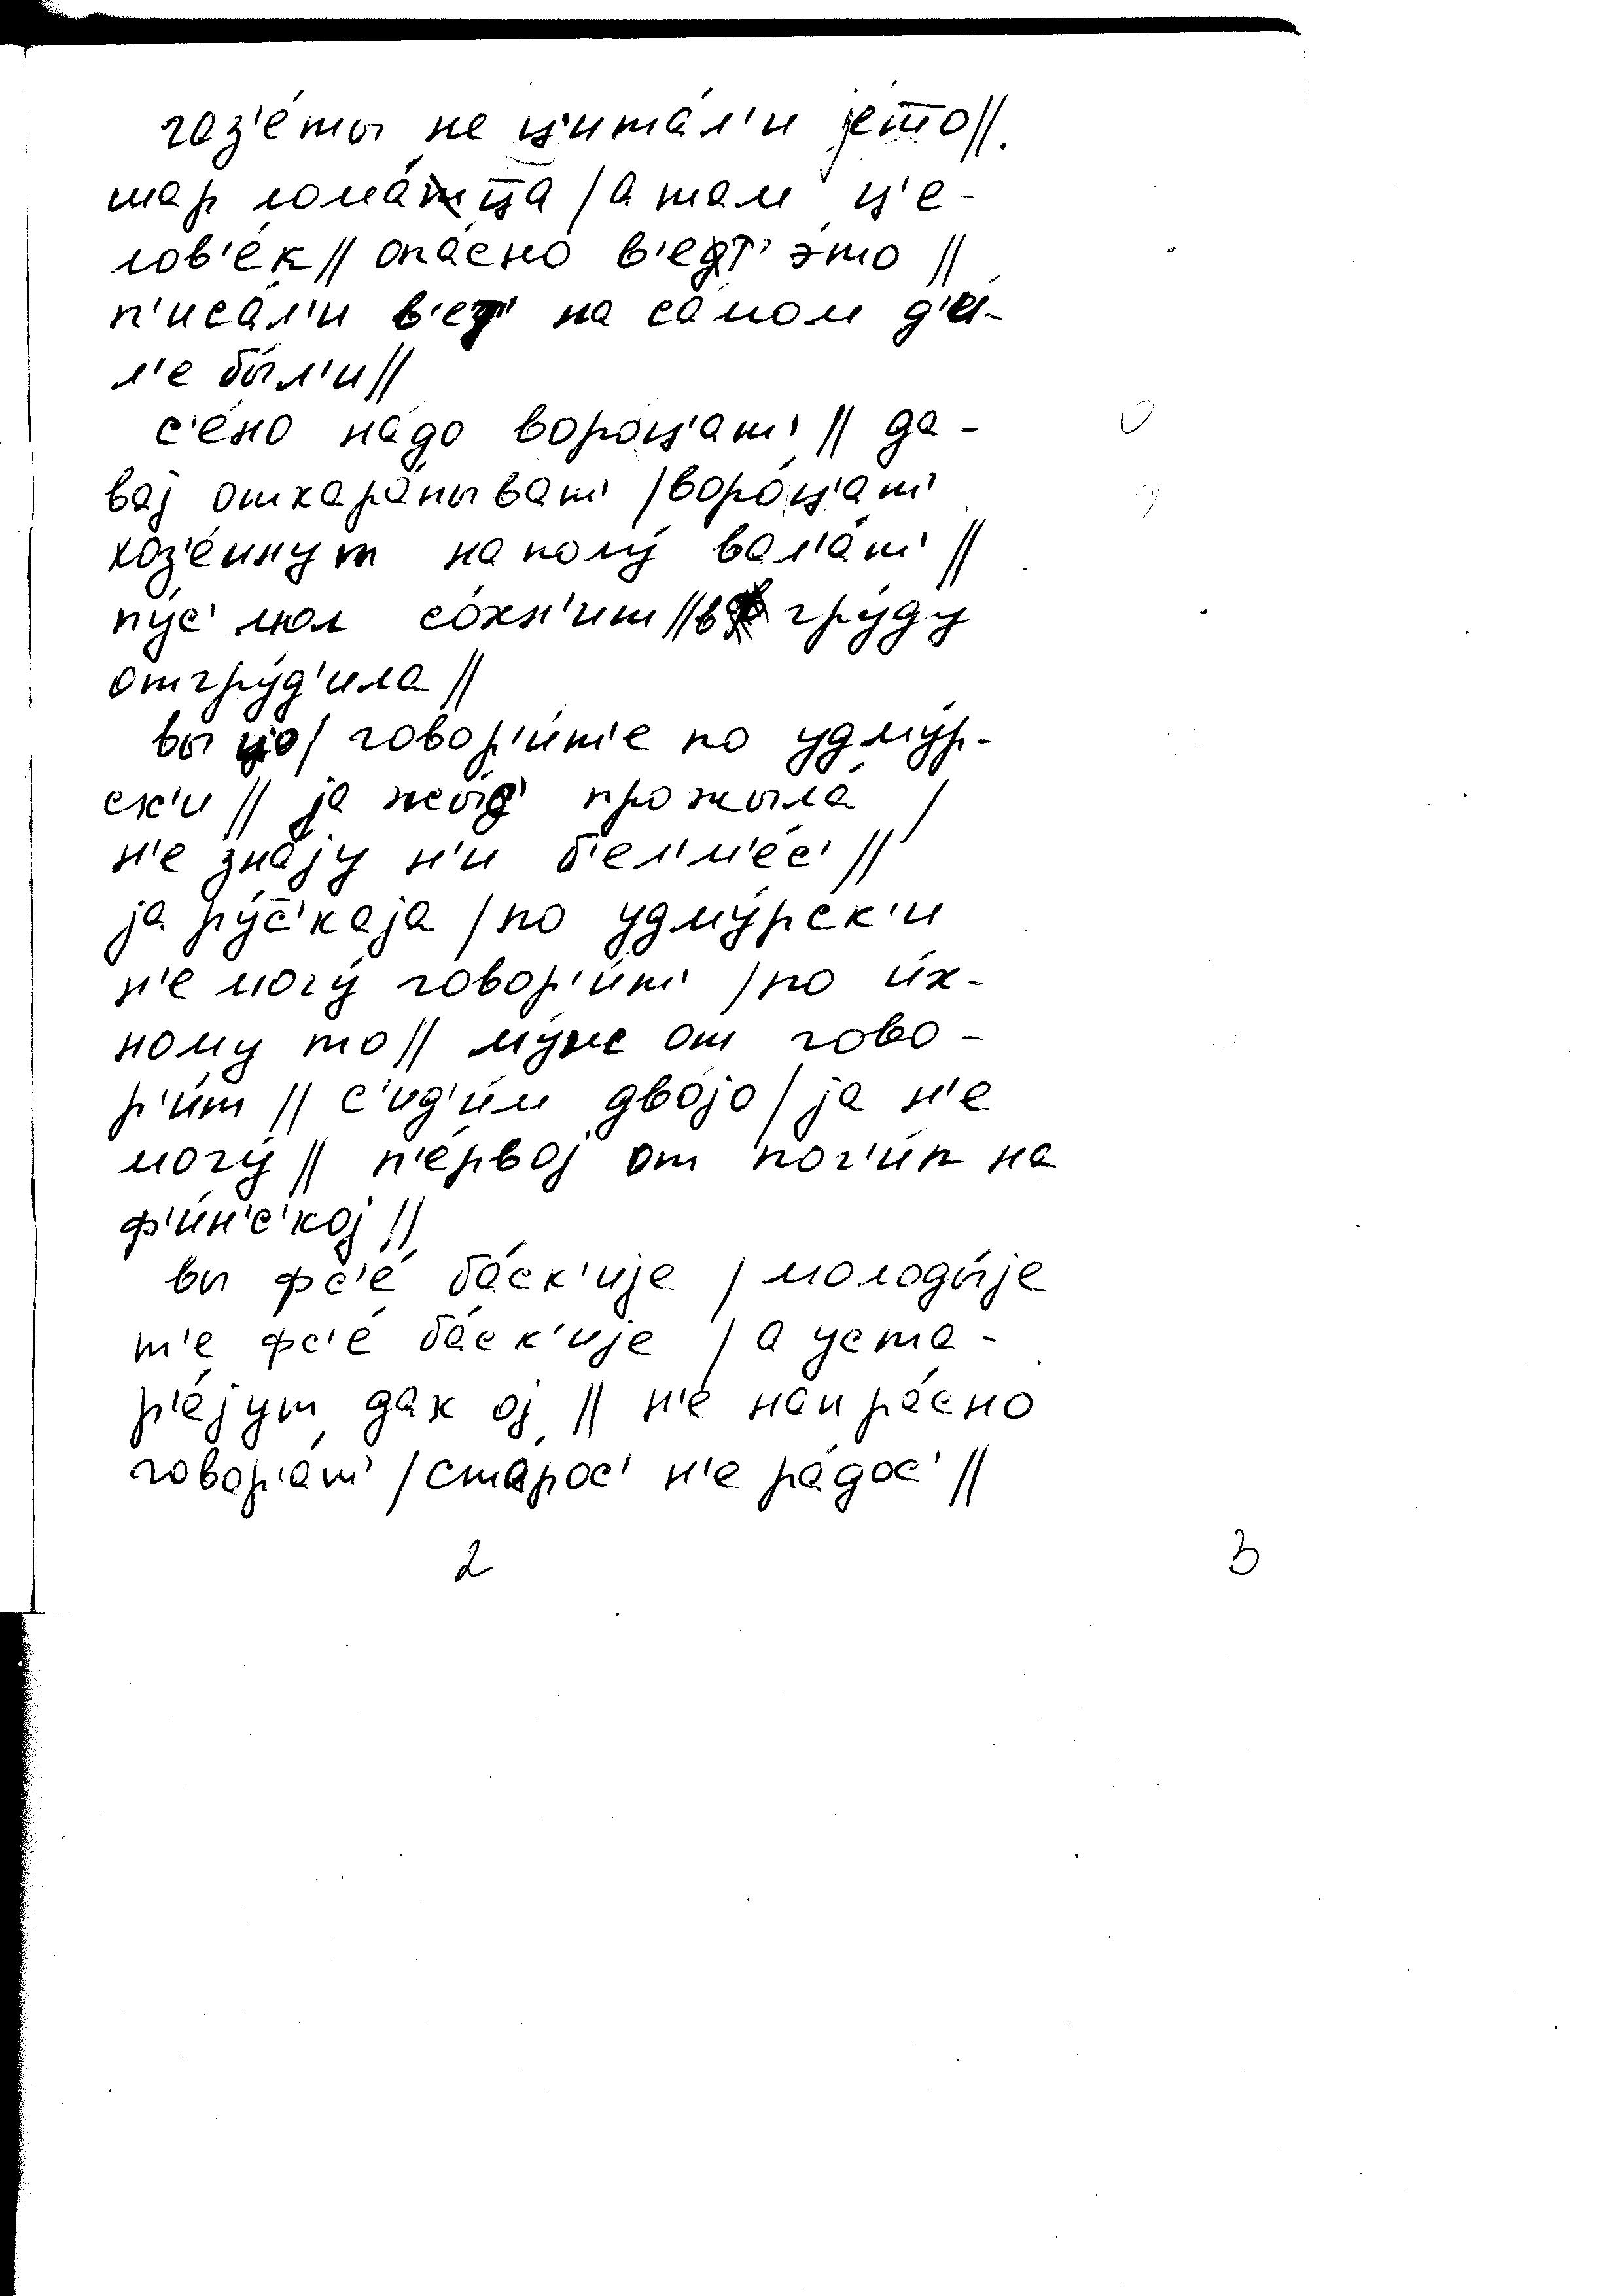 газ'е́ты не ц'ита́л'и је́то //.
шар лома́ц̅а / а там ц'е-
лов'е́к // опа́сно в'ет' э́то //
п'иса́л'и в'ет' на са́мом д'и́-
л'е бы́л'и //
с'е́но на́до воро́ц'ат' // да-
вај откара́пыват' / воро́ц'ат'
наполу́ вал'а́т' //
пу́с' мол со́хн'ит // в гру́ду
отгру́д'ила //
вы цо / говор'и́т'е по удму́р-
ск'и // ја жы́з' прожыла́ /
н'е зна́ју н'и б'ел'м'е́с' //
ја ру́с̅'каја / по удму́рск'и
н'е могу́ говор'и́т' / по и́х-
ному то // му́ж от гово-
р'и́т // с'ид'и́м дво́јо / ја н'е
могу́ // п'е́рвој от пог'и́п на
ф'и́н'с'кој //
вы фс'е́ ба́ск'ије / молоды́је
т'е фс'е́ ба́ск'ије / а уста-
р'е́јут дак ој // н'е напра́сно
говор'а́т' / ста́рос' н'е ра́дос' //
2
3